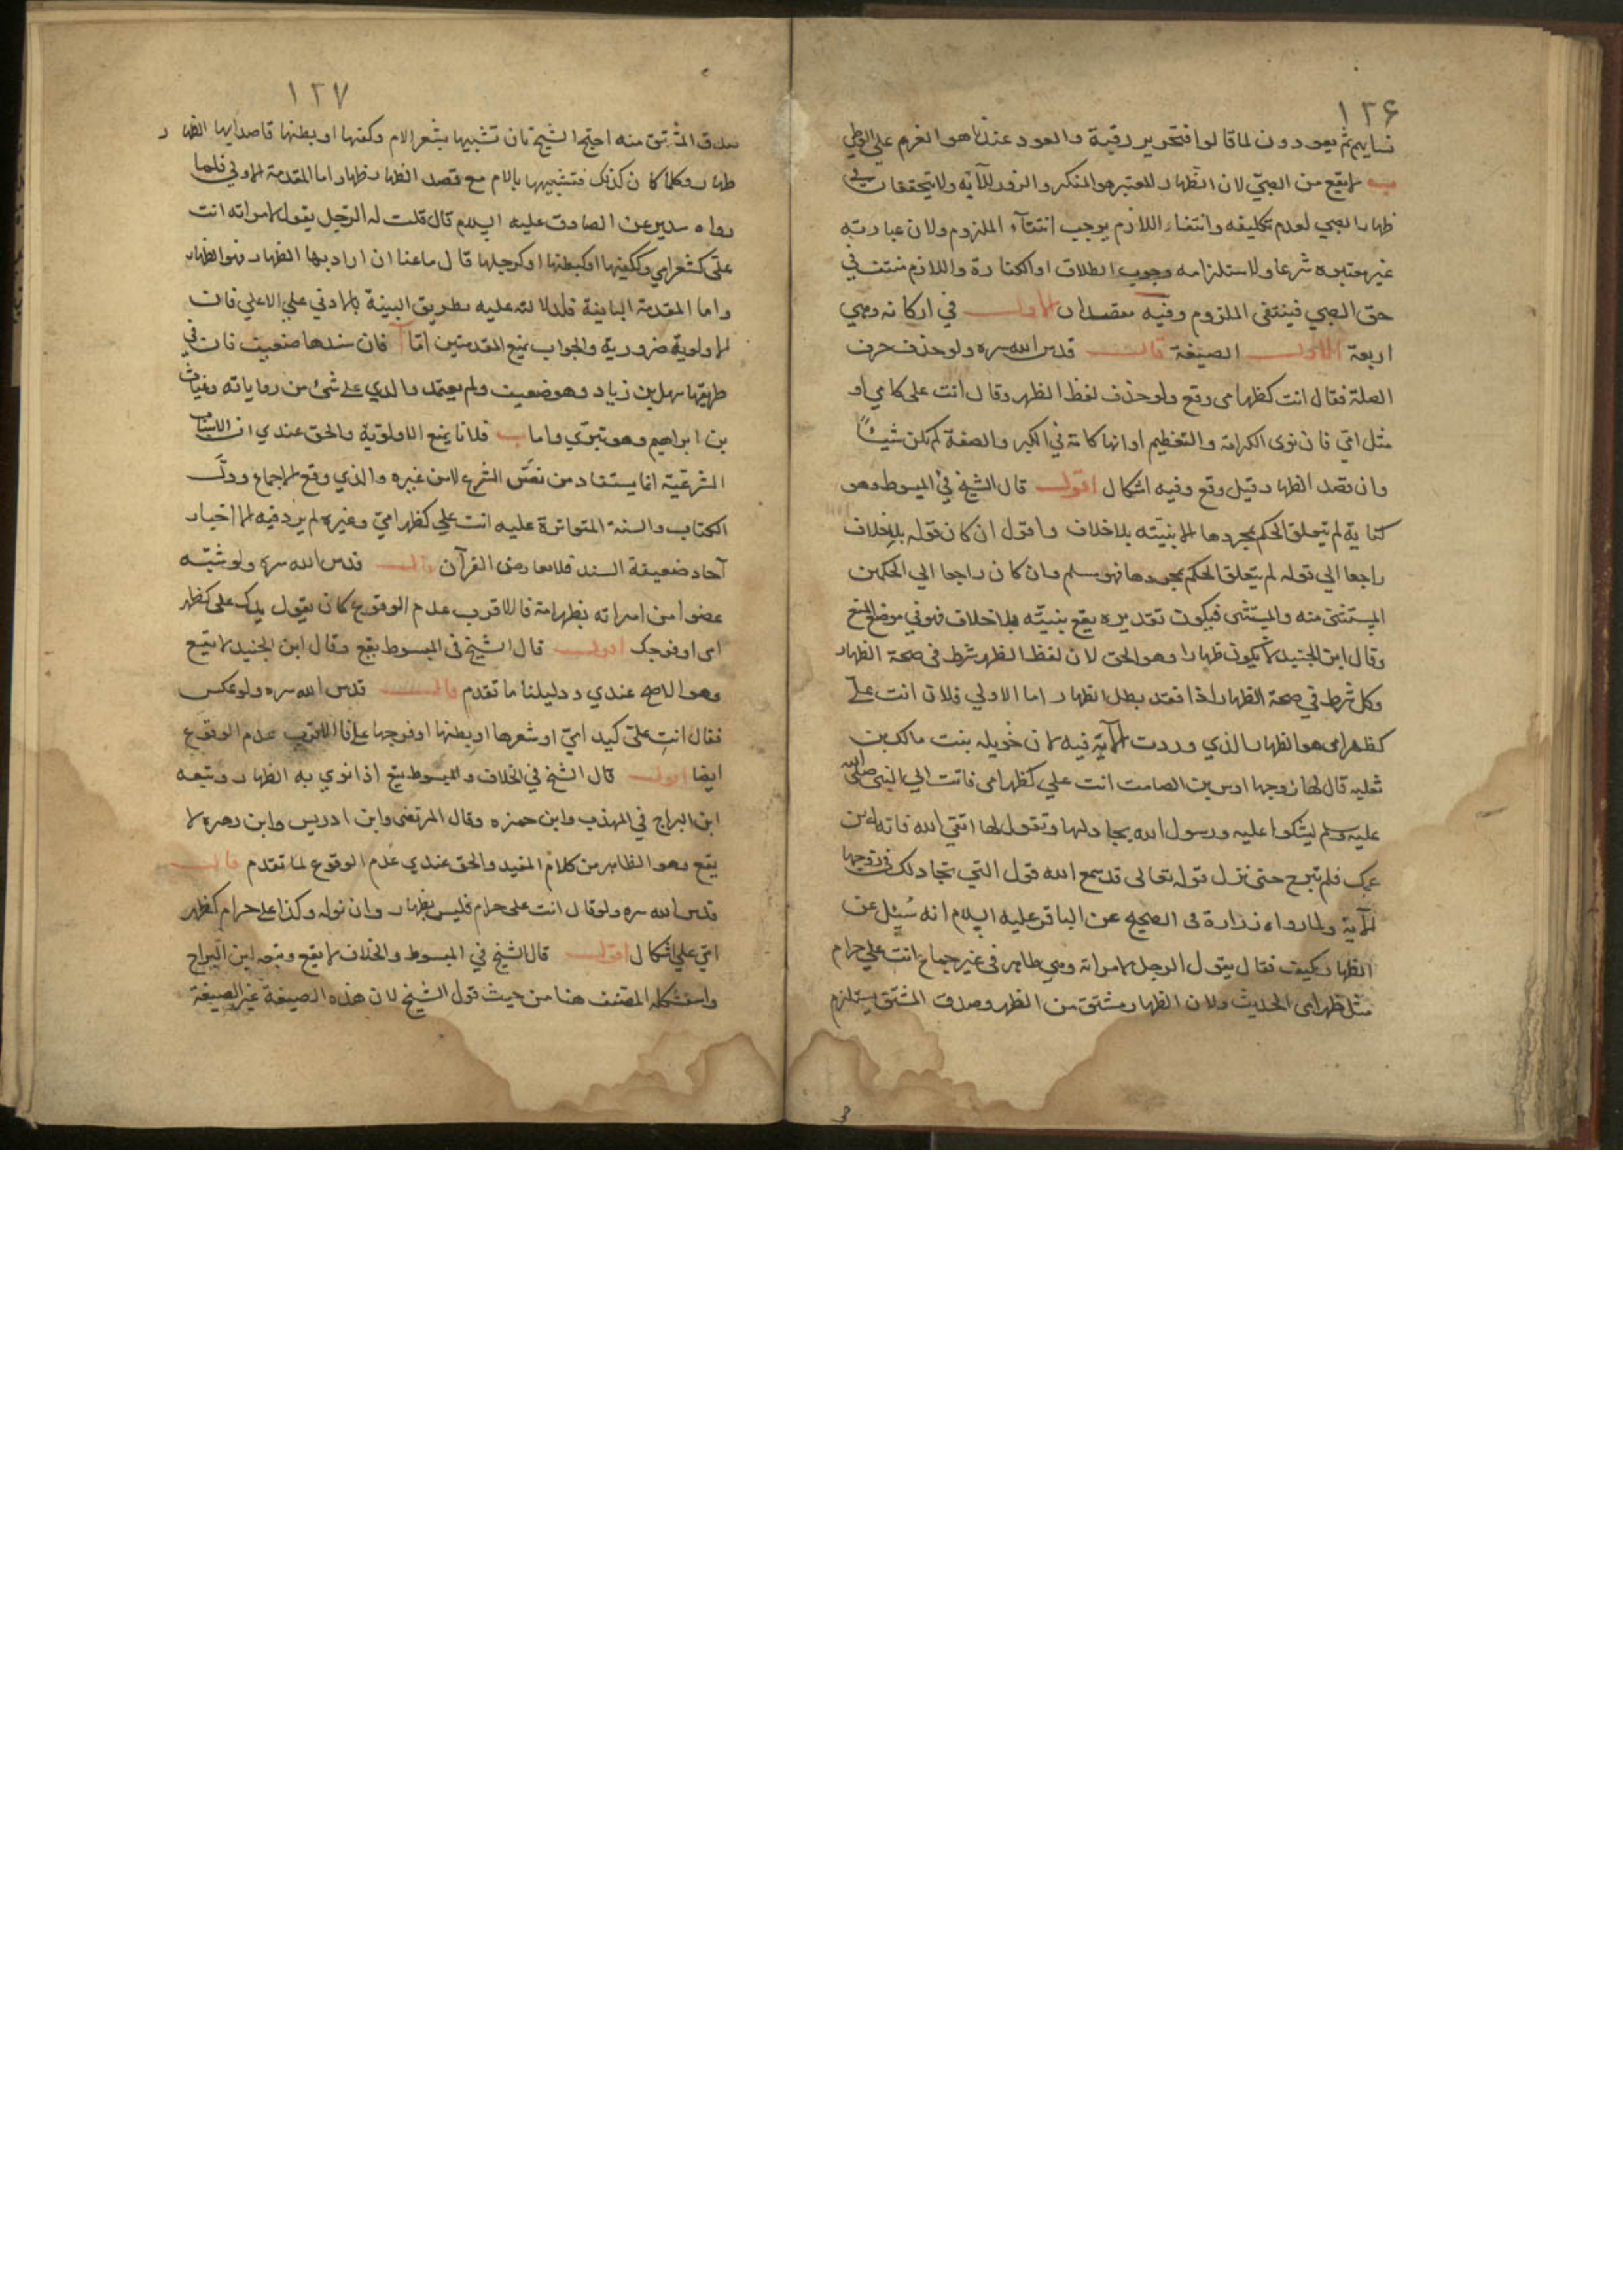 ١٢۶
نسايهم ثم يعودون لما قالوا فتحرير رقبة والعود عندنا هو العزم على الوطي
ب لا يقع من الصبي لان الظهار المعتبر هو المنكر والزور للآية ولا يتحققان في
ظهار الصبي لعدم تكليفه وانتفاء اللازم يوجب انتفآء الملزوم ولان عبارته
غير معتبره شرعا ولاستلزامه وجوب الطلاق او الكفارة واللازم منتف في
حق الصبي فينتفى الملزوم وفيه مقصدان الاول في اركانه وهي
اربعة الاول الصيغة قال قدس الله سره ولو حذف حرف
الصلة فقال انت كظهر امى وقع ولو حذف لفظ الظهر وقال انت على كامي او
مثل امّي فان نوى الكرامة والتعظيم او انها كامة في الكبر والصفة لم يكن شيئًا
وان قصد الظهار قيل وقع وفيه اشكال اقول قال الشيخ في المبسوط وهو
كناية لم يتعلق الحكم بمجردها الا بنيّته بلا خلاف واقول ان كان قوله بلا خلاف
راجعا الي قوله لم يتعلق الحكم بمجردها فهو مسلم وان كان راجعا الي الحكمين
المستثنى منه والمستثنى فيكون تقديره يقع بنيّته بلا خلاف فهو في موضع المنع
وقال ابن الجنيد لا يكون ظهارا وهو الحق لان لفظ الظهر شرط فى صحة الظهار
وكل شرط في صحة الظهار اذا فقد بطل الظهار اما الاولي فلان انت علي
كظهر امى هو الظهار الذي وردت الآية فيه لان خويله بنت مالك بن
ثعلبه قال لها زوجها اوس بن الصامت انت علي كظهر امى فاتت الي النبي صلى الله
عليه وسلم ليشكوا عليه ورسول الله يجادلها ويقول لها اتقي الله فانه ابن
عمك فلم تبرح حتى نزل قوله تعالى قد سمع الله قول التي تجادلك في زوجها
الآية ولما رواه زرارة فى الصحيح عن الباقر عليه السلام انه سُئل عن
الظهار كيف فقال يقول الرجل لامراته وهي طاهر فى غير جماع انت علي حرام
مثل ظهر امى الحديث ولان الظهار مشتق من الظهر وصدق المشتق يستلزم
١٢٧
صدق المشتق منه احتج الشيخ بان تشبيهها بشعر الام وكفها او بطنها قاصدا بها الظهار
ظهار وكلما كان كذلك فتشبيهها بالام مع قصد الظهار ظهار اما المقدمة الاولي فلما
رواه سدير عن الصادق عليه السلام قال قلت له الرجل يقول لامراته انت
علىّ كشعر امي وككفيها او كبطنها او كرجلها قال ما عنا ان اراد بها الظهار فهو الظهار
واما المقدمة الثانية فلدلالته عليه بطريق البينة بالادنى على الاعلى فان
الاولوية ضرورية والجواب بمنع المقدمتين امّا آ فان سندها ضعيف فان في
طريقها سهل بن زياد وهو ضعيف ولم يعتمد والدي على شئ من رواياته وغياث
بن ابراهيم وهو تبري واما ب فلانا نمنع الاولوية والحق عندي ان الاسباب
الشرعيّة انما يستفاد من نصّ الشرع لا من غيره والذي وقع الاجماع ودلّ
الكتاب والسنة المتواترة عليه انت على كظهر امى وغيره لم يرد فيه الا اخبار
آحاد ضعيفة السند فلا تعارض القرآن قال قدس الله سره ولو شبّه
عضوا من امراته بظهر امه فالاقرب عدم الوقوع كان يقول يدك على كظهر
امى او فرجك اقول قال الشيخ فى المبسوط يقع وقال ابن الجنيد لا يقع
وهو الاصح عندي ودليلنا ما تقدم قال قدس الله سره ولو عكس
فقال انتِ علىّ كيد امىّ او شعرها او بطنها او فرجها فالاقرب عدم الوقوع
ايضا اقول قال الشيخ في الخلاف والمبسوط يقع اذا نوي به الظهار وتبعه
ابن البراج في المهذب وابن حمزه وقال المرتضى وابن ادريس وابن زهره لا
يقع وهو الظاهر من كلام المفيد والحق عندي عدم الوقوع لما تقدم قال
قدس الله سره ولو قال انت على حرام فليس بظهار وان نواه وكذا على حرام كظهر
امي على اشكال اقول قال الشيخ في المبسوط والخلاف لا يقع وتبعه ابن البراج
واستشكله المصنف هنا من حيث قول الشيخ لان هذه الصيغة غير الصيغة